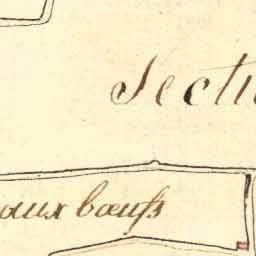 Secti
aux bœufs